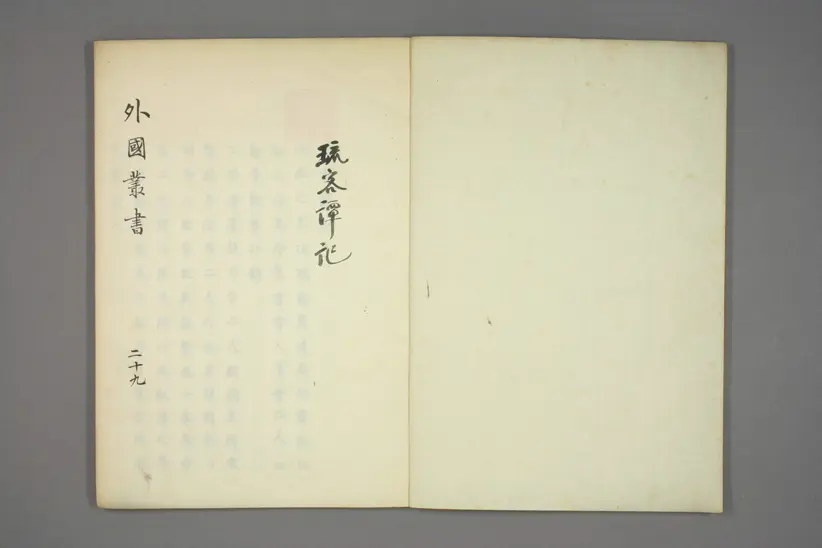 琉客譚記
外國叢書
二十九